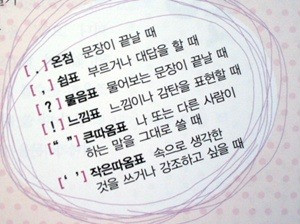 [ . ] 온점 문장이 끝날 때
[ , ] 쉼표 부르거나 대답을 할 때
[ ? ] 물음표 물어보는 문장이 끝날 때
[ ! ] 느낌표 느낌이나 감탄을 표현할 때
[ “ ” ] 큰따옴표 나 또는 다른 사람이
하는 말을 그대로 쓸 때
[ ‘ ’ ] 작은따옴표 속으로 생각한
것을 쓰거나 강조하고 싶을 때